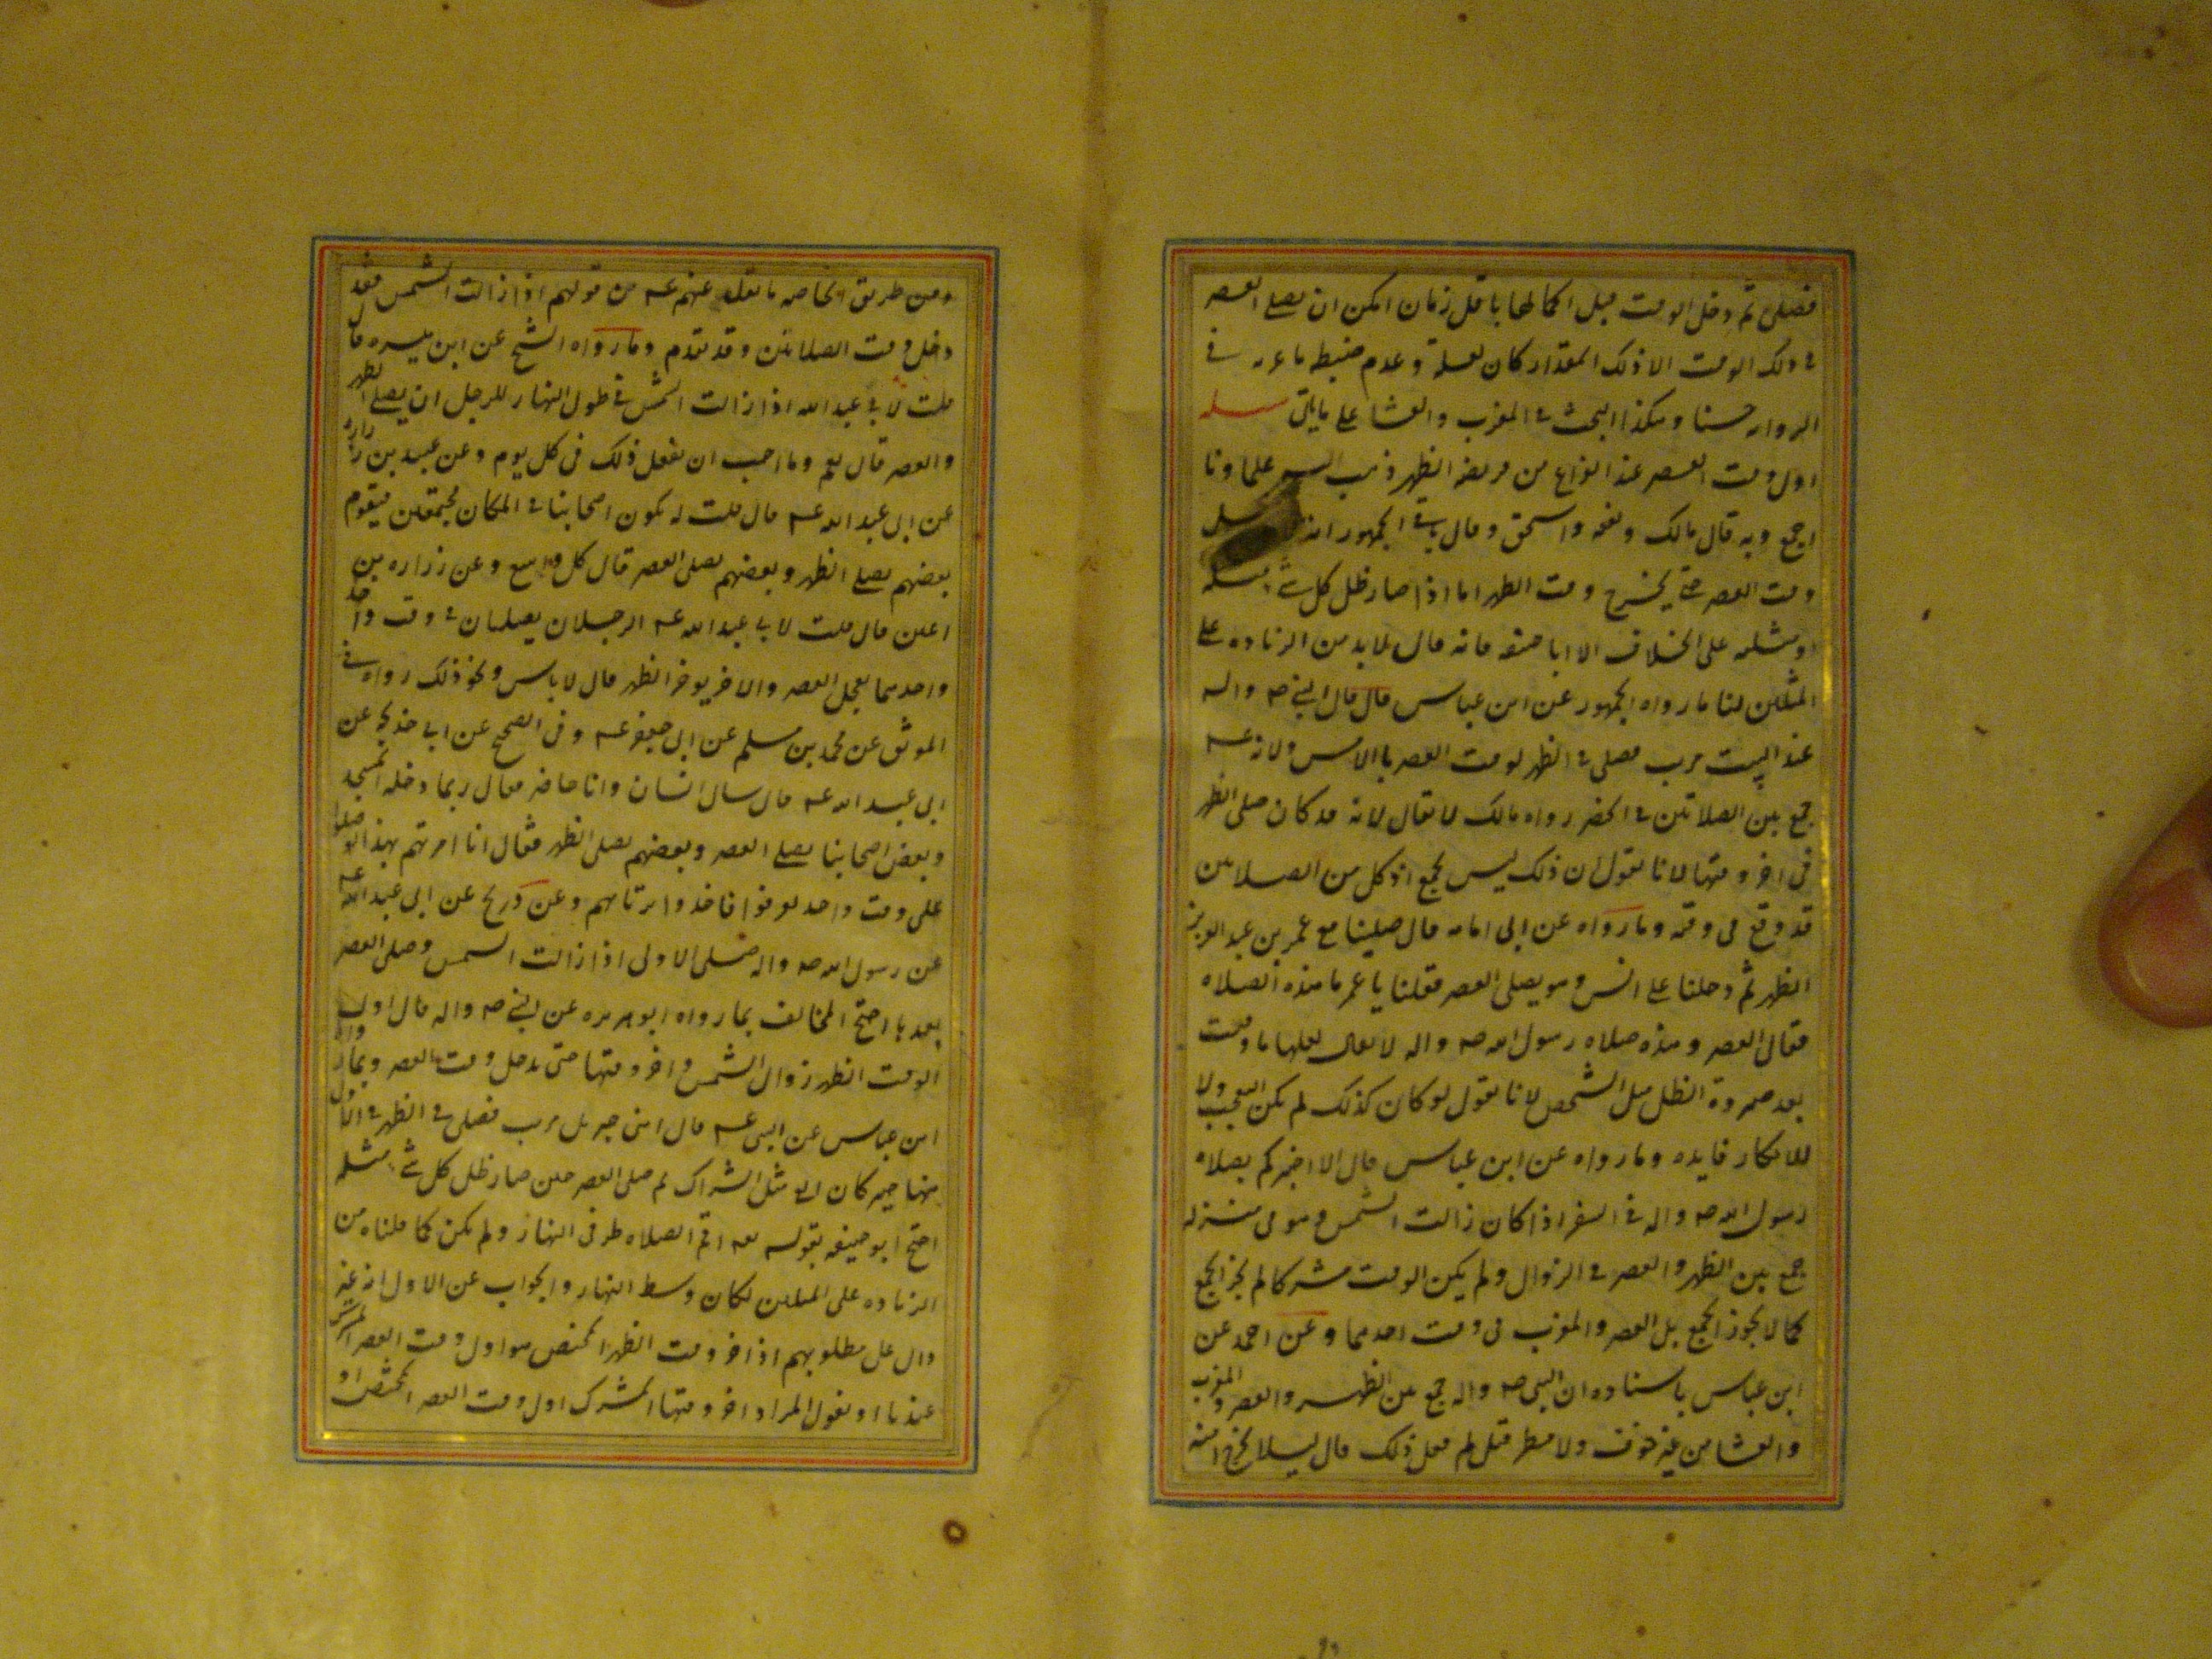 فصلى ثم دخل الوقت قبل اكمالها باقل زمان امكن ان يصلى العصر
فى ذلك الوقت الا ذلك المقدار كان لقلة وعدم ضبطه ما عرد فى
الروايه حسنا وهكذا البحث فى المغرب والعشا على ما ياتى مسله
اول وقت العصر عند الفراغ من فريضه الظهر ذهب اليه علماونا
اجمع وبه قال مالك وربيعه واسحق وقال باقى الجمهور انه
وقت العصر حتى يخرج وقت الظهر اما اذا صار ظل كل شى مثله
او مثليه على الخلاف الا ابا حنيفه فانه قال لا بد من الزياده على
المثلين لنا ما رواه الجمهور عن ابن عباس قال قال النبى صه واله
عند البيت مرب فصلى فى الظهر لوقت العصر بالامس ولانه عه
جمع بين الصلاتين فى الحضر رواه مالك لا يقال لانه قد كان صلى الظهر
فى اخر وقتها لانا نقول ان ذلك ليس بجمع اذ كل من الصلاتين
قد وقع فى وقته وما رواه عن ابى امامه قال صلينا مع عمر بن عبد العزيز
الظهر ثم دخلنا على انس وهو يصلى العصر فقلنا يا عمر ما هذه الصلاه
فقال العصر وهذه صلاه رسول الله صه واله لا يقال لعلها ما وقعت
بعد صيرورة الظل مثل الشخص لانا نقول لو كان كذلك لم يكن للتعجب ولا
للانكار فايده وما رواه عن ابن عباس قال الا اخبركم بصلاه
رسول الله صه واله فى السفر اذا كان زالت الشمس وهو فى منزله
جمع بين الظهر والعصر فى الزوال ولم يكن الوقت مشركا لم يجز الجمع
كما لا يجوز الجمع بين العصر والمغرب فى وقت احدهما وعن احمد عن
ابن عباس باسناده ان النبى صه واله جمع بين الظهر والعصر والمغرب
والعشا من غير خوف ولا مطر فقيل لم فعل ذلك قال ليلا يخرج امته
ومن طريق الخاصه ما نقل عنهم عه من قولهم اذا زالت الشمس فقد
دخل وقت الصلاتين وقد تقدم وما رواه الشيخ عن ابن ميسره قال
قلت لابى عبد الله اذا زالت الشمس فى طول النهار للرجل ان يصلى الظهر
والعصر قال نعم وما احب ان يفعل ذلك فى كل يوم وعن عبيد بن زراره
عن ابى عبد الله عه قال قلت له يكون اصحابنا فى المكان مجتمعين فيقوم
بعضهم يصلى الظهر وبعضهم يصلى العصر قال كل واسع وعن زراره بن
اعين قال قلت لابى عبد الله عه الرجلان يصليان فى وقت واحد
واحدهما يعجل العصر والاخر يوخر الظهر قال لا باس ونحو ذلك رواه فى
الموثق عن محمد بن مسلم عن ابى جعفر عه وفى الصحيح عن ابى خديجه عن
ابى عبد الله عه قال سال انسان وانا حاضر فقال ربما دخلت المسجد
وبعض اصحابنا يصلى العصر وبعضهم يصلى الظهر فقال انا امرتهم بهذا لو صلوا
على وقت واحد لعرفوا فاخذوا برقابهم وعن ذريح عن ابى عبد الله عه
عن رسول الله صه واله صلى الاولى اذا زالت الشمس وصلى العصر
بعدها احتج المخالف بما رواه ابو هريره عن النبى صه واله قال اول
الوقت الظهر زوال الشمس واخر وقتها حتى يدخل وقت العصر وبما رواه
ابن عباس عن النبى عه قال امنى جبريل مرب فصلى فى الظهر فى الاول
منها حين كان الفى مثل الشراك ثم صلى العصر حين صار ظل كل شى مثله
احتج ابو حنيفه بقوله تعه اقم الصلاه طرفى النهار ولم يكن كما قلناه من
الزياده على المثلين لكان وسط النهار والجواب عن الاول انه غير
دال على مطلوبهم اذ اخر وقت الظهر المختص هو اول وقت العصر المشترك
عندنا او نقول المراد اخر وقتها المشترك اول وقت العصر المختص او